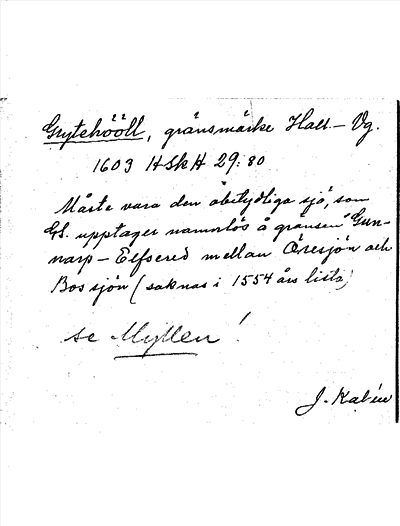 Grytehööll, gränsmärke Hall.– Vg.
1603 HSkH 29:80
Måste vara den obetydliga sjö, som
GS. upptager namnlös å gränsen Gun-
narp – Elfsered mellan Öresjön och
Bossjön (saknas i 1554 års lista)
se Myllen!
J. Kalén